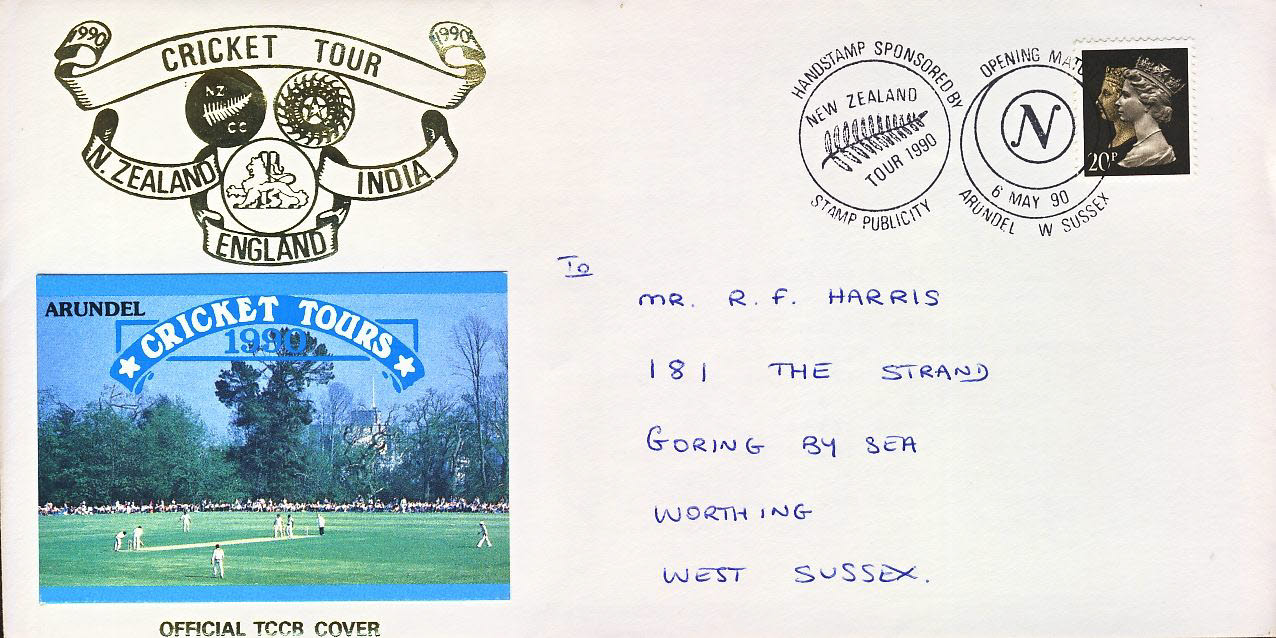 1990
1990
CRICKET TOUR
NZ
CC
N. ZEALAND
INDIA
ENGLAND
ARUNDEL
CRICKET TOURS
1990
OFFICIAL TCCB COVER
HANDSTAMP SPONSORED BY
NEW ZEALAND
TOUR 1990
STAMP PUBLICITY
OPENING MATC
N
6 MAY 90
ARUNDEL W SUSSEX
20P
To
MR. R. F. HARRIS
181 THE STRAND
GORING BY SEA
WORTHING
WEST SUSSEX.